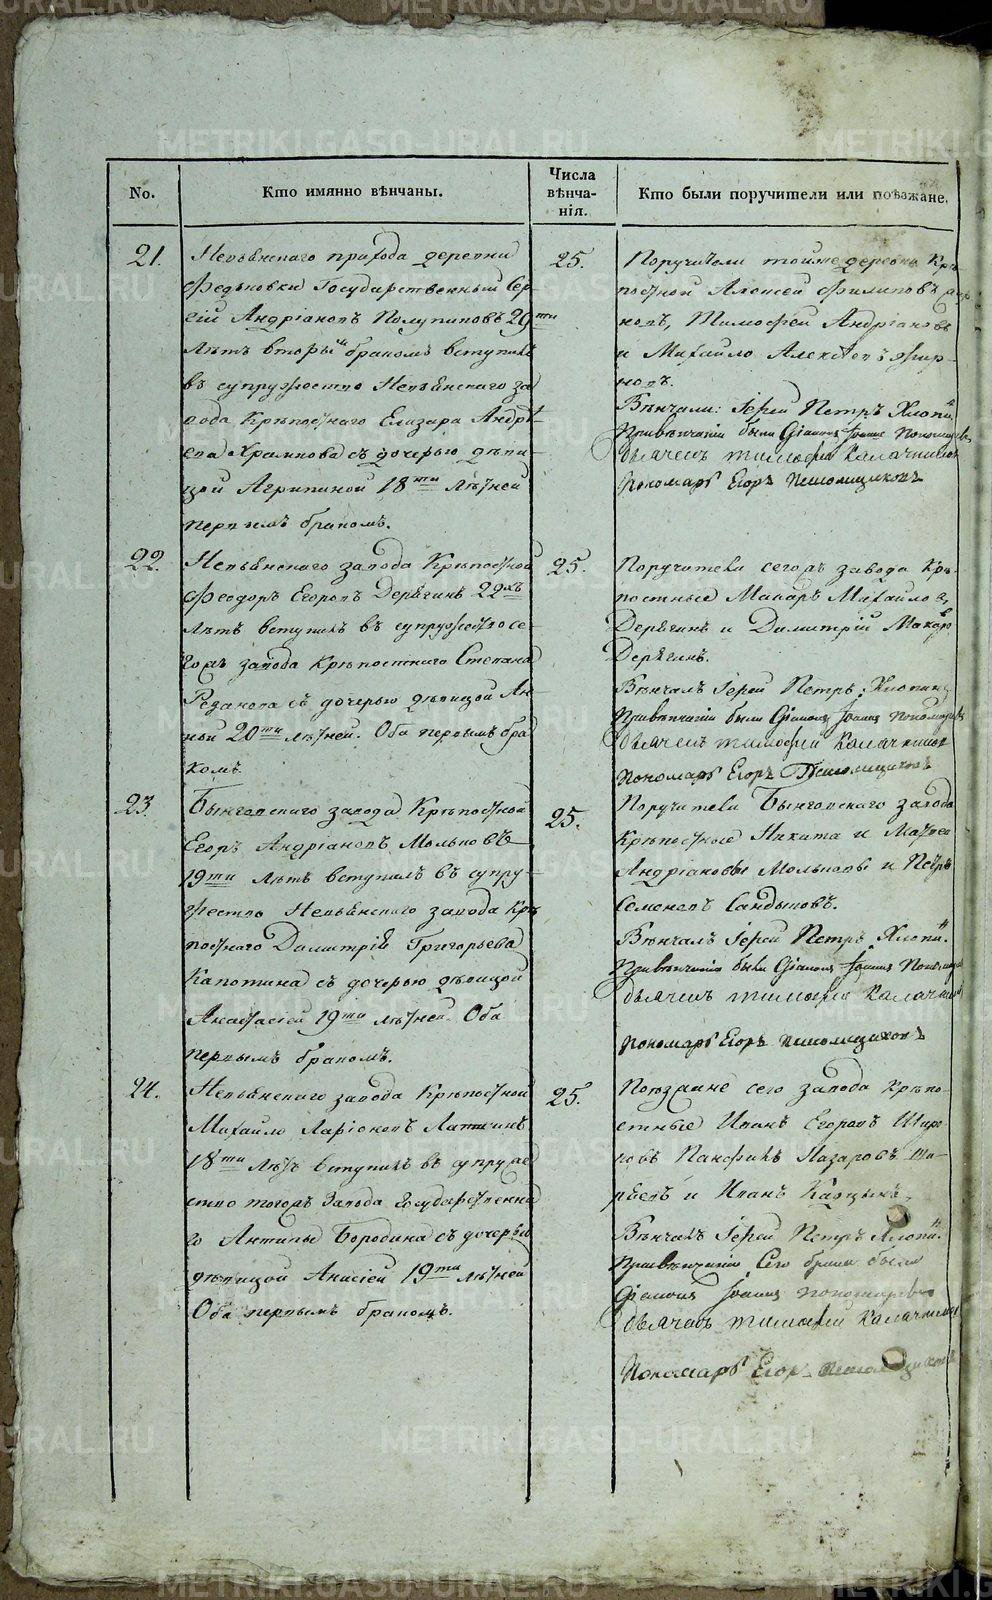 METRIKI.GASO-URAL.RU
No.
Кто имянно вѣнчаны.
Числа
вѣнча-
нія.
Кто были поручители или поѣзжане.
21.
Невьянскаго прихода деревни
Федьковки Государственный Сер-
гій Андріановъ Полупановъ 29ти
лѣтъ вторымъ бракомъ вступилъ
въ супружество Невьянскаго за
вода Крѣпостнаго Елизара Андрѣ-
ева Храмкова съ дочерью дѣви-
цой Агрипиной 18ти лѣтней
первымъ бракомъ.
25.
Поручители тойже деревни Крѣ-
постной Алексей Филиповъ
новъ, Тимофей Андріановъ
и Михайло Алексѣевъ Жир-
новъ.
Вѣнчали: Іерей Петръ Хлопи
При вѣнчаніи были Діаконъ Іоаннъ Пономаревъ
дьячекъ Тимофей Калачниковъ
Пономарь Егоръ
22.
Невьянскаго завода Крѣпостной
Феодоръ Егоровъ Дерягинъ 22хъ
лѣтъ вступилъ въ супружество се-
гожъ завода Крѣпостнаго Степана
Резанова съ дочерью дѣвицой Ан-
ной 20ти лѣтней. Оба первымъ бра
комъ.
25.
Поручители сегожъ завода Крѣ-
постные Макаръ Михайловъ
Дерягинъ и Димитрій Макаро
Дерягинъ.
Вѣнчалъ Іерей Петръ Хлопинъ
При вѣнчаніи были Діаконъ Іоаннъ Пономаревъ
дьячекъ Тимофей Калачников
Пономарь Егоръ
23.
Быньговскаго завода Крѣпостной
Егоръ Андріановъ Мольковъ
19ти лѣтъ вступилъ въ супру-
жество Невьянскаго завода Крѣ
постнаго Димитрій Григорьева
Капотина съ дочерью дѣвицой
Анастасіей 19ти лѣтней. Оба
первымъ бракомъ.
25.
Поручители Быньговскаго завода
Крѣпостные Никита и Матвей
Андріановы Мольковы и Петръ
Семеновъ Сандыковъ.
Вѣнчалъ Іерей Петръ Хлопи.
При вѣнчаніи были Діаконъ Іоаннъ Пономар
дьячекъ Тимофей Калачник
Пономарь Егоръ
24.
Невьянскаго завода Крѣпостной
Михайло Ларіоновъ Лаптинъ
18ти лѣтъ вступилъ въ супруже
ство тогожъ Завода Государственна
го Антипы Бородина съ дочерью
дѣвицой Анисіей 19ти лѣтней
Оба первымъ бракомъ.
25.
Поѣзжане сего завода Крѣпо-
стные Иванъ Егоровъ Широ
ковъ Панфилъ Назаровъ
и Иванъ
Вѣнчалъ Іерей Петръ Хлопи.
При вѣнчаніи Сего брака были
Діаконъ Іоаннъ Пономаревъ
дьячекъ Тимофей Калачников
Пономарь Егоръ